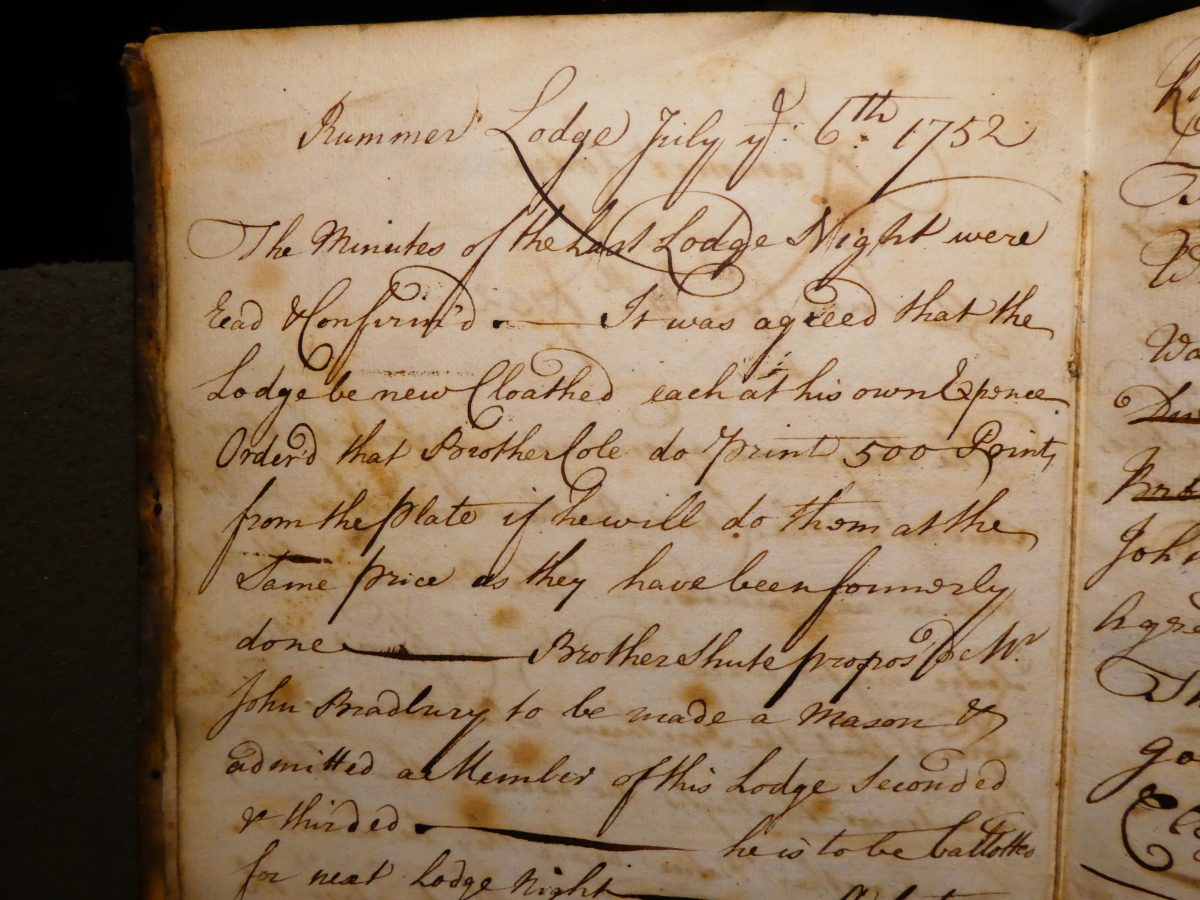 Rummer Lodge July ye. 6th. 1752
The Minutes of the Last Lodge Night were
read & Confirm'd. — It was agreed that the
Lodge be new Cloathed each at his own Expence
Order'd that Brother Cole do print 500 Prints
from the plate if he will do them at the
Same price as they have been formerly
done — Brother Shute propos'd Mr.
John Bradbury to be made a Mason &
admitted a Member of this Lodge Seconded
& thirded. — he is to be ballotted
for next Lodge Night —